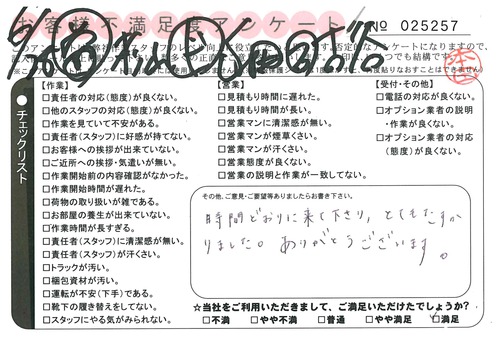 お客様不満足度アンケート
No 025257
チェックリスト
【作業】
□責任者の対応(態度)が良くない。
□他のスタッフの対応(態度)が良くない。
□作業を見ていて不安がある。
□責任者(スタッフ)に好感が持てない。
□お客様への挨拶が出来ていない。
□ご近所への挨拶・気遣いが無い。
□作業開始前の内容確認がなかった。
□作業開始時間が遅れた。
□荷物の取り扱いが雑である。
□お部屋の養生が出来ていない。
□作業時間が長すぎる。
□責任者(スタッフ)に清潔感が無い。
□責任者(スタッフ)が汗くさい。
□トラックが汚い。
□梱包資材が汚い。
□運転が不安(下手)である。
□靴下の履き替えをしてない。
□スタッフにやる気がみられない。
【営業】
□見積もり時間に遅れた。
□見積もり時間が長い。
□営業マンに清潔感が無い。
□営業マンが煙草くさい。
□営業マンが汗くさい。
□営業態度が良くない。
□営業の説明と作業が一致してない。
【受付・その他】
□電話の対応が良くない。
□オプション業者の説明
・作業が良くない。
□オプション業者の対応
(態度)が良くない。
その他、ご意見・ご要望等ありましたらお書き下さい。
時間どおりに来て下さり、とてもたすか
りました。ありがとうございます。
☆当社をご利用いただきまして、ご満足いただけたでしょうか?
□不満 □やや不満 □普通 □やや満足 □満足